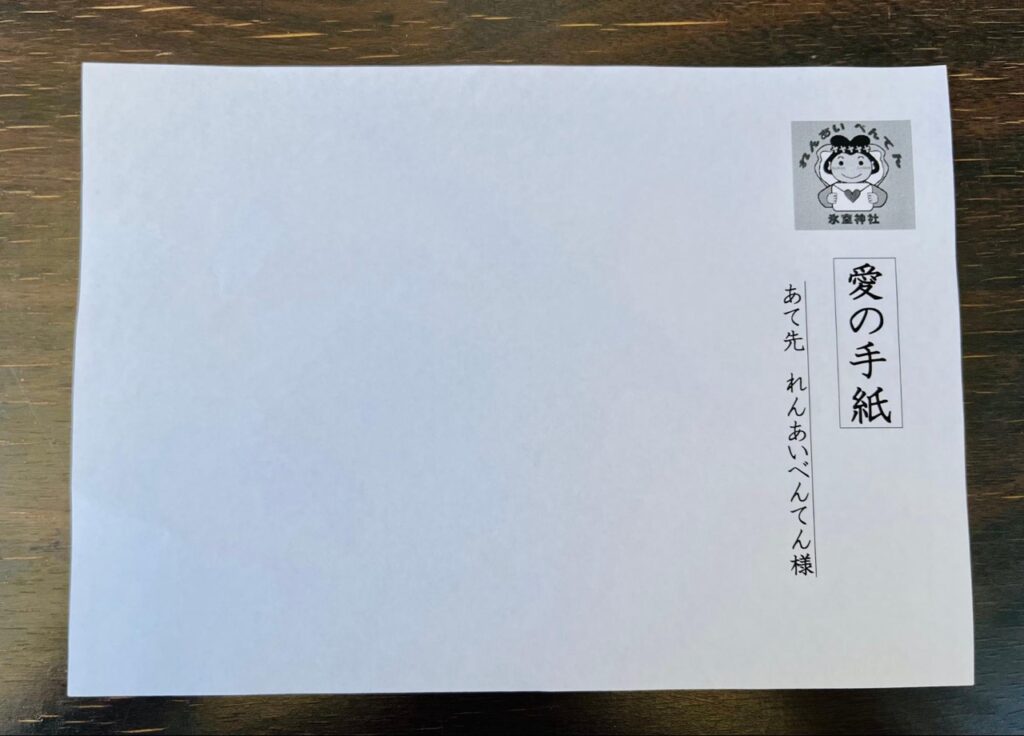 れんあいべんてん
氷室神社
愛の手紙
あて先 れんあいべんてん様